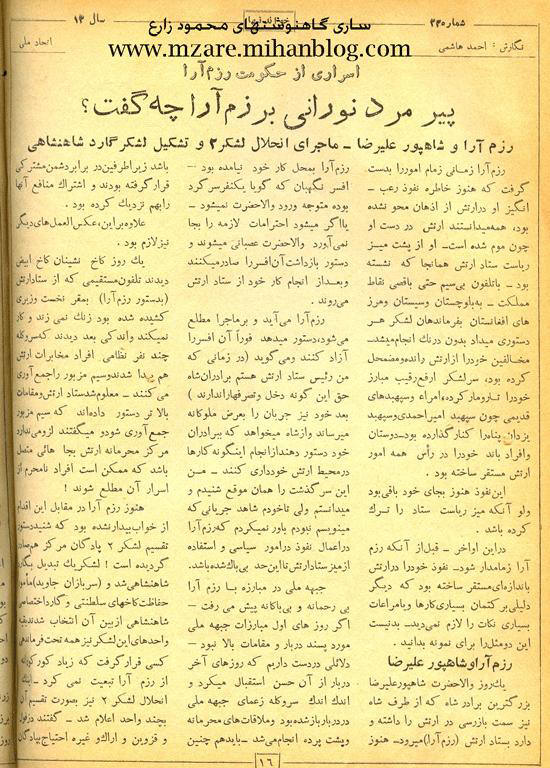 ساری گاهنوشتهای محمود زارع
www.mzare.mihanblog.com
شماره ۲۳۰
سال ۱۳
نگارش : احمد هاشمی
اتحاد ملی
اسراری از حکومت رزم‌آرا
پیر مرد نورانی بر رزم آرا چه گفت ؟
رزم آرا و شاهپور علیرضا – ماجرای انحلال لشکر ۲ و تشکیل لشکر گارد شاهنشاهی
رزم آرا زمانی زمام امور را بدست
گرفت که هنوز خاطره نفوذ رعب –
انگیز او در ارتش از اذهان محو نشده
بود، همه میدانستند ارتش در دست او
چون موم شده است– او از پشت میز
ریاست ستاد ارتش همانجا که نشسته
بود – با تلفون بی‌سیم حتی باقصی نقاط
مملکت – به بلوچستان وسیستان ومرز
های افغانستان بفرماندهان لشکر هر
دستوری میداد بدون درنگ انجام میشد–
مخالفین خود را از ارتش رانده ومضمحل
کرده بود، سرلشکر ارفع رقیب مبارز
خود را تارومار کرده،امراء وسپهبدهای
قدیمی چون سپهبد امیراحمدی وسپهبد
یزدان پناه را کنار گذارده بود–دوستان
وافراد باند خود را در رأس همه امور
ارتش مستقر ساخته بود .
این نفوذ هنوز بجای خود باقی بود
ولو آنکه میز ریاست ستاد را ترک
کرده باشد .
در این اواخر – قبل از آنکه رزم
آرا زمامدار شود– نفوذ خود را در ارتش
باندازه‌ای مستقر ساخته بود که دیگر
دلیلی بر کتمان بسیاری کارها و یا مراعات
بسیاری نکات را لازم نمی‌دید– بدنیست
این دومثل را برای نمونه بدانید .
رزم آرا و شاهپور علیرضا
یک روز والاحضرت شاهپور علیرضا
بزرگترین برادر شاه که از طرف شاه
نیز سمت بازرسی در ارتش را داشته و
دارد بستاد ارتش (رزم آرا) میرود– هنوز
رزم آرا بمحل کار خود نیامده بود –
افسر نگهبان که گویا یکنفر سرگرد
بوده متوجه ورود والاحضرت نمیشود –
یا اگر میشود احترامات لازمه را بجا
نمی‌آورد والاحضرت عصبانی میشوند و
دستور بازداشت آن افسر را صادر میکنند
و بعد از انجام کار خود از ستاد ارتش
می‌روند .
رزم آرا می‌آید و بر ماجرا مطلع
می‌شود،دستور میدهد فوراً آن افسر را
آزاد کنند و می‌گوید (در زمانی که
من رئیس ستاد ارتش هستم برادران شاه
حق این گونه دخل و تصرفها را ندارند )
بعد خود نیز جریان را بعرض ملوکانه
میرساند و از شاه میخواهد که ببرادران
خود دستور دهند از انجام اینگونه کارها
در محیط ارتش خودداری کنند – من
این سرگذشت را همان موقع شنیدم و
میدانستم ولی تا خودم شاهد جریانی که
مینویسم نبودم باور نمیکردم که رزم آرا
در اعمال نفوذ در امور سیاسی و استفاده
از میز ستاد ارتش تا این حد بی‌باک شده باشد.
جبهه ملی در مبارزه با رزم آرا
بی رحمانه و بی‌باکانه پیش می رفت –
اگر روز های اول مبارزات جبهه ملی
مورد پسند دربار و مقامات بالا نبود –
دلائلی در دست داریم که روزهای آخر
دربار از آن حسن استقبال میکرد و
اندک اندک سروکله زعمای جبهه ملی
در دربار باز شده بود و ملاقات های محرمانه
و پشت پرده انجام می‌شد – باید هم چنین
باشد زیرا طرفین در برابر دشمن مشترکی
قرار گرفته بودند و اشتراک منافع آنها
را بهم نزدیک کرده بود .
علاوه بر این،عکس العمل های دیگر
نیز لازم بود .
یک روز کاخ نشینان کاخ ابیض
دیدند تلفون مستقیمی که از ستاد ارتش
(بدستور رزم آرا) بمقر نخست وزیری
کشیده شده بود زنگ نمی زند و کار
نمیکند و اندکی بعد دیدند که سروکله
چند نفر نظامی افراد مخابرات ارتش
هم پیدا شدند وسیم مزبور را جمع آوری
می کنند – معلوم شد ستاد ارتش و مقامات
بالا تر دستور داده‌اند که سیم مزبور
جمع آوری شود و میگفتند لزومی ندارد
مرکز محرمانه ارتش بجا هائی متصل
باشد که ممکن است افراد نامحرم از
اسرار آن مطلع شوند !
هنوز رزم آرا در مقابل این اقدام
از خواب بیدار نشده بود که شنید دستور
تقسیم لشکر ۲ پادگان مرکز هم صادر
گردیده است ! لشکر یک تبدیل بگارد
شاهنشاهی شد و (سربازان جاوید) مأمور
حفاظت کاخهای سلطنتی و گارد اختصاصی
شاهنشاهی از بین آن انتخاب شدند بقیه
واحدهای این لشکر نیز همه تحت فرماندهی
کسی قرار گرفت که زیاد کور کورانه
از رزم آرا تبعیت نمی کرد –
انحلال لشکر ۲ نیز بصورت تقسیم آن
بچند واحد اعلام شد – گفتند دزفول
و قزوین و اراک و غیره احتیاج بپادگان
۱۶